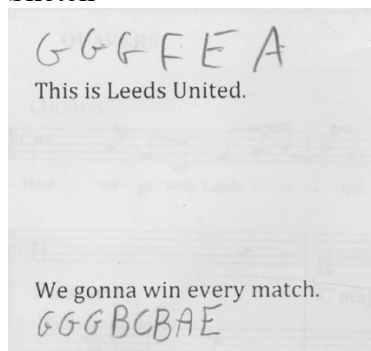 G G G F E A
This is Leeds United.
We gonna win every match.
G G G B C B A E